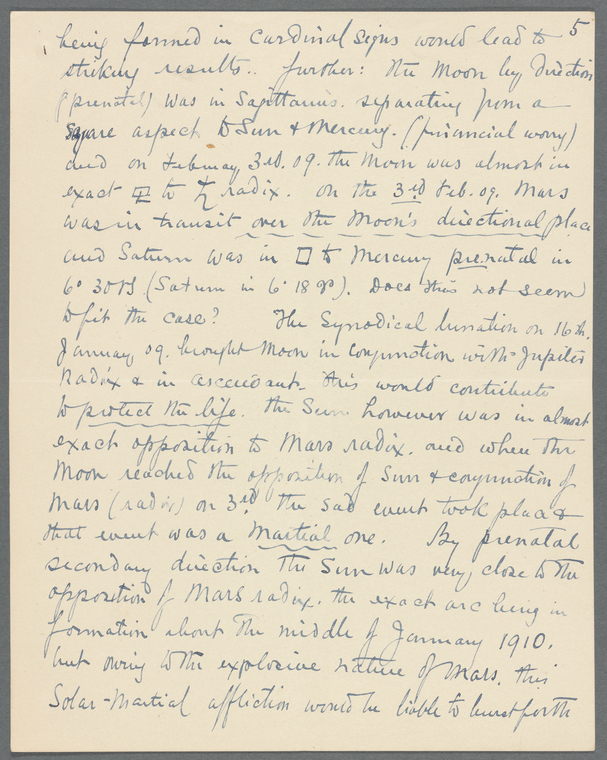 5
being formed in Cardinal Signs would lead to
striking results.. further: the Moon by Direction
(prenatal) was in Sagittarius. separating from a
Square aspect to Sun & Mercury. (financial worry)
and on February 3rd. 09. the Moon was almost in
exact ⚼ to ♄ radix. on the 3rd Feb. 09. Mars
was in transit over the Moon's directional place
and Saturn was in □ to Mercury prenatal in
6° 30 ♑ (Saturn in 6° 18 ♈). Does this not seem
to fit the case? The Synodical lunation on 16th.
January 09. brought Moon in conjunction with Jupiter
Radix & in ascendant. this would contribute
to protect the life. the Sun however was in almost
exact opposition to Mars radix. and when the
Moon reached the opposition of Sun & conjunction of
Mars (radix) on 3rd the sad event took place &
that event was a Martial one. By prenatal
secondary direction the Sun was very close to the
opposition of Mars radix. the exact arc being in
formation about the middle of January 1910.
but owing to the explosive nature of Mars. this
Solar-Martial affliction would be liable to burst forth